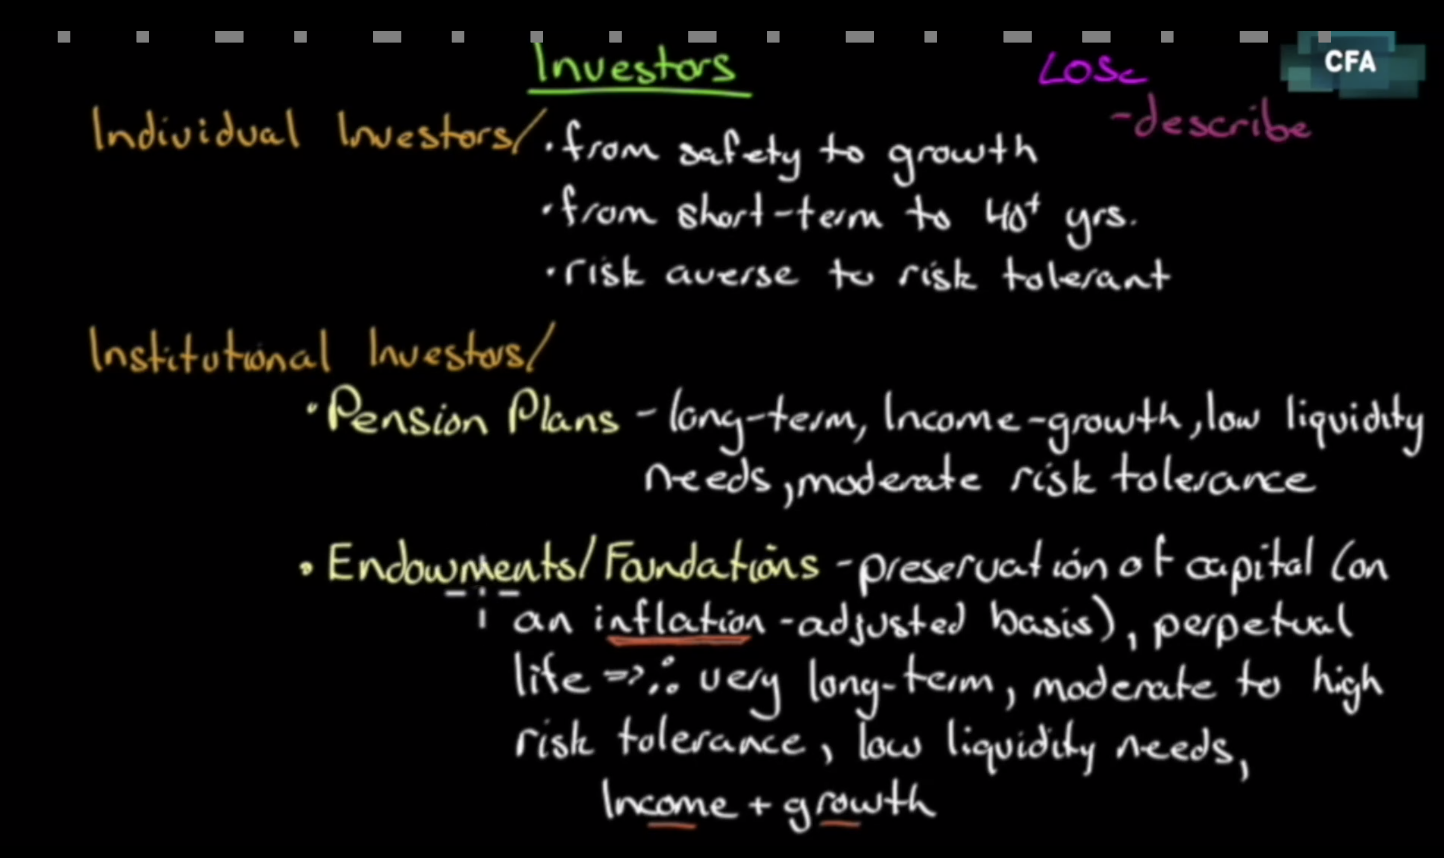 Investors
LOSc
CFA
-describe
Individual Investors/
·from safety to growth
·from short-term to 40+ yrs.
·risk averse to risk tolerant
Institutional Investors/
·Pension Plans - long-term, Income-growth, low liquidity
needs, moderate risk tolerance
·Endowments/Foundations - preservation of capital (on
an inflation-adjusted basis), perpetual
life => ∴ very long-term, moderate to high
risk tolerance, low liquidity needs,
Income + growth